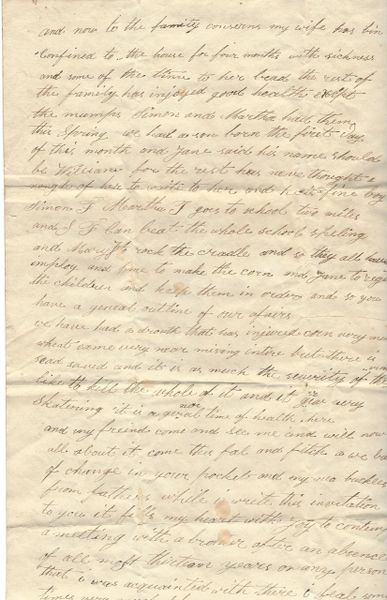 and now to the family concerns my wife has bin
Confined to the house for four months with sickness
and some of the time to her bead the rest of
the family has injoyed good health except
the mumps Simon and Martha had them
this Spring we had a son born the first day
of this month and Jane said his name should
be William for the rest has never thought
enough of her to write to her and he is a fine boy
Simon F Martha J goes to school two miles
and S F Can beat the whole school speling
and Mary rock the cradle and so they all
employ and mine to make the corn and Jane to
the children and keep them in order and so you
have a general outline of our afairs
we have had a drouth that has injured corn very
wheat came very near missing intire but there is
sead saved and it is as much the of the
like to kill the whole of it and it is very
skatering it is a time of health here
and my freind come and see me and will now
all about it come this fal and fetch a
of change in your pockets and my buckles
from father while i write this invitation
to you it fills my heart with joy to
a meeting with a brother after an absence
of all most thirtian years or any person
that i was acquainted with there i
times